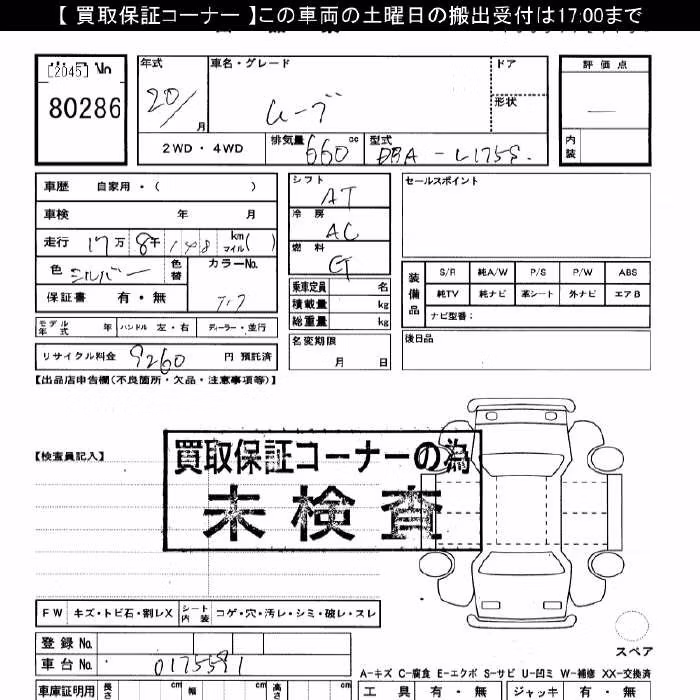 【 買取保証コーナー 】この車両の土曜日の搬出受付は17:00まで
[2045] No
80286
年式 20/ 月
車名・グレード ムーブ
ドア
形状
評価点
内装
2WD・4WD
排気量 660 cc
型式 DBA-L175S.
車歴 自家用・( )
車検 年 月
走行 17万 8千 148 km マイル ( )
色 シルバー 色替
カラーNo.
保証書 有・無
モデル年式 年 ハンドル 左・右 ディーラー・並行
リサイクル料金 9260 円 預託済
シフト AT
冷房 AC
燃料
乗車定員 名
積載量 kg
総重量 kg
名変期限
月 日
セールスポイント
装備品
S/R 純A/W P/S P/W ABS
純TV 純ナビ 革シート 外ナビ エアB
ナビ型番:
後日品
【出品店申告欄(不良箇所・欠品・注意事項等)】
【検査員記入】
買取保証コーナーの為
未検査
FW キズ・トビ石・割レX シート内装 コゲ・穴・汚レ・シミ・破レ・スレ
登録 No.
車台 No. 0175591
スペア
A-キズ C-腐食 E-エクボ S-サビ U-凹ミ W-補修 XX-交換済
車庫証明用 長さ cm 幅 cm 高さ cm
工具 有・無 ジャッキ 有・無